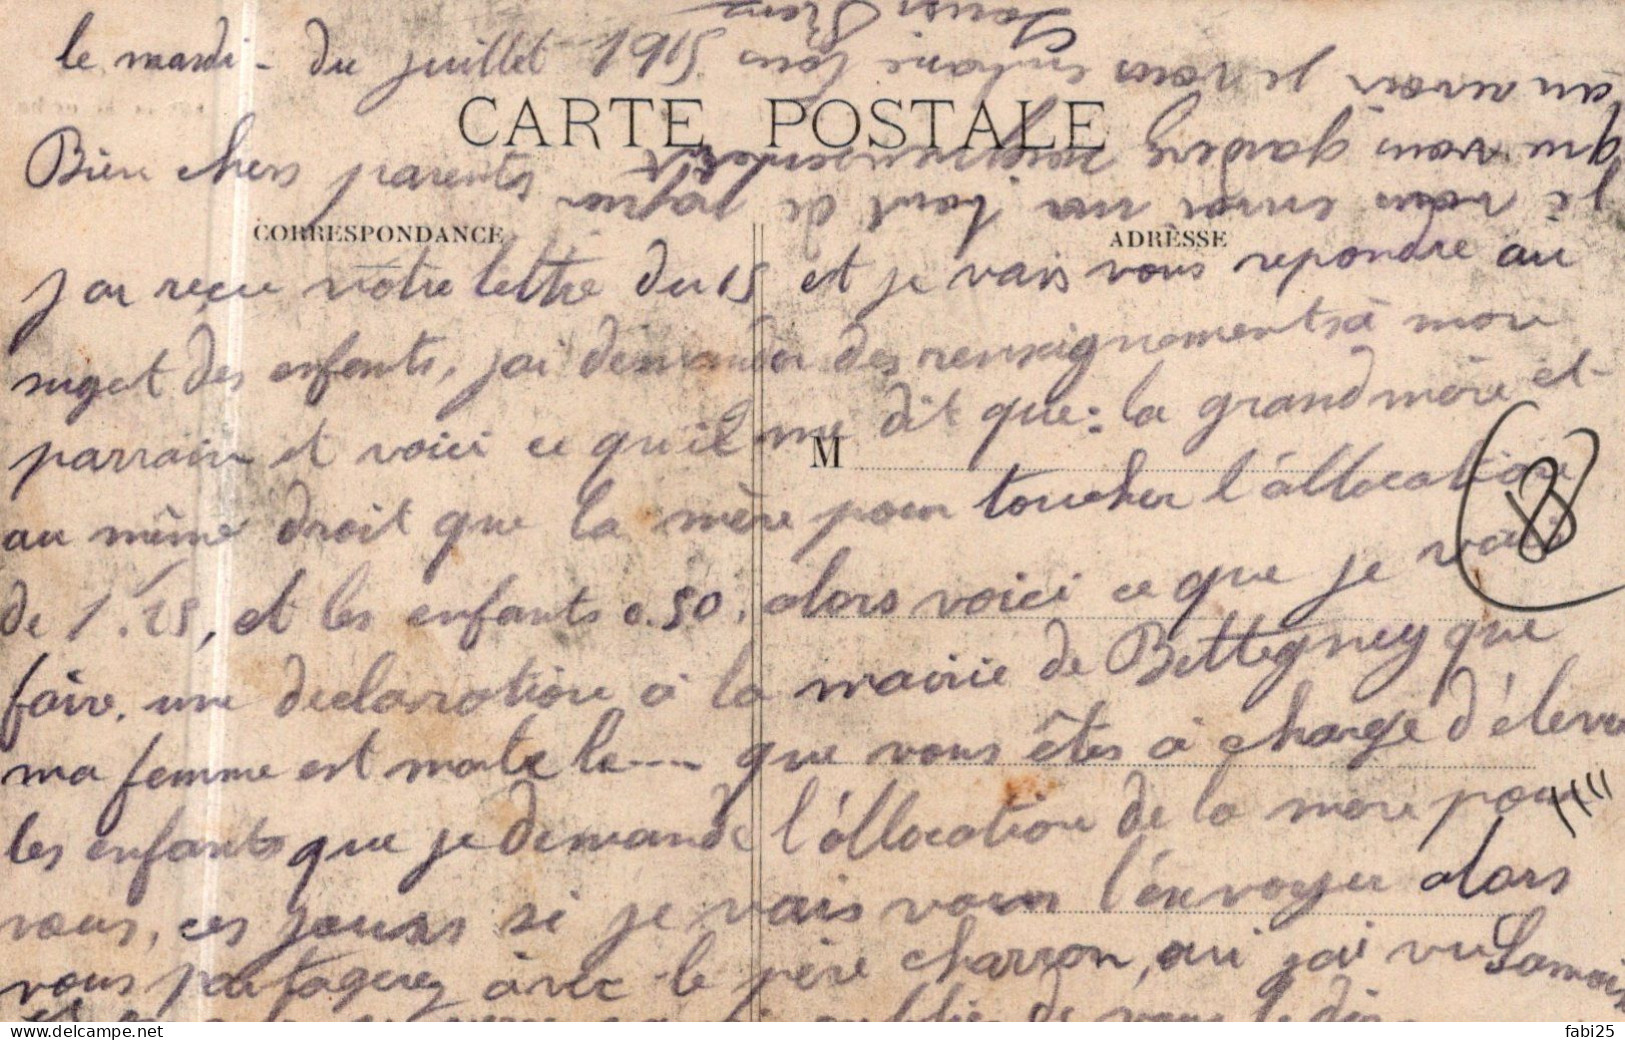 le mardi - du juillet 1915.
CARTE POSTALE
Bien chers parents
CORRESPONDANCE
ADRESSE
j ai reçu votre lettre du 15 et je vais vous repondre au
suget des enfants, j'ai demander des renseignements à mon
parrain et voici ce qu'il me dit que: la grand mère et
M
au même droit que la mère pour toucher l'allocation
de 1.25, et les enfants 0.50, alors voici ce que je vais
faire. une declaration à la mairie de Bettegney que
ma femme est morte le --- que vous êtes à charge d'élever
les enfants que je demande l'allocation de la mere pour
vous, ces jours si je vais vous l'envoyer alors
vous partagerez avec le père charron, oui j'ai vu
oublier de vous le dire
je vous envoi un bout de
que vous garderez soigneusement
au revoir je vous embrasse tous
Louis
www.delcampe.net
fabi25